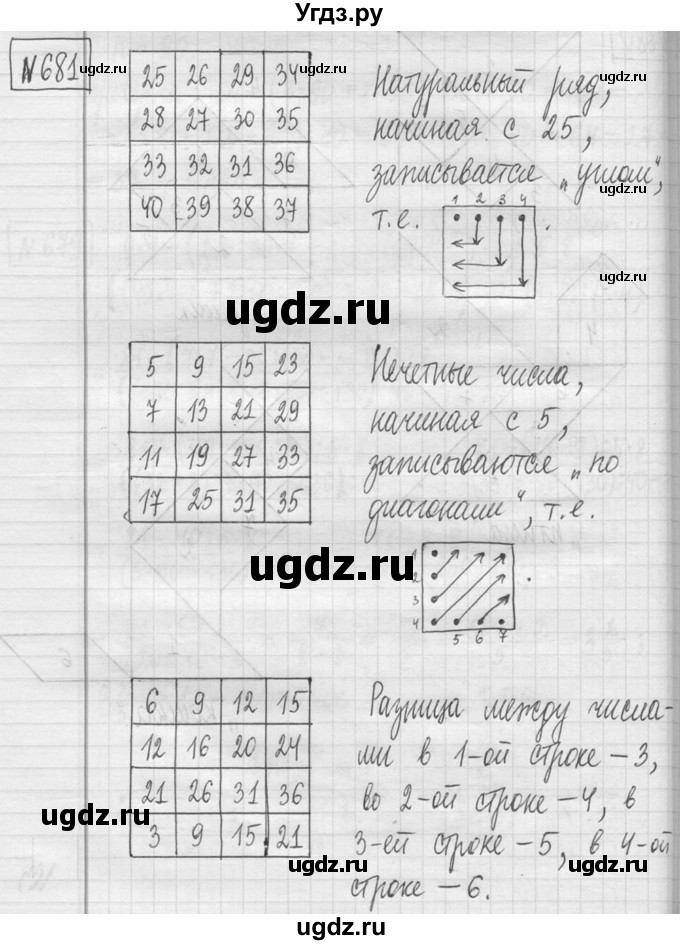 Угдз.ру
N681
ugdz.ru
ugdz.ru
ugdz.ru
25 26 29 34
28 27 30 35
33 32 31 36
40 39 38 37
Натуральный ряд,
начиная с 25,
записывается „углом",
т.е.
1 2 3 4
.
ugdz.ru
ugdz.ru
ugdz.ru
ugdz.ru
5 9 15 23
7 13 21 29
11 19 27 33
17 25 31 35
Нечетные числа,
начиная с 5,
записываются „по
диагонали", т.е.
1
2
3
4
5 6 7
.
ugdz.ru
ugdz.ru
ugdz.ru
6 9 12 15
12 16 20 24
21 26 31 36
3 9 15 21
Разница между числа-
ми в 1-ой строке – 3,
во 2-ой строке – 4, в
3-ей строке – 5, в 4-ой
строке – 6.
ugdz.ru
ugdz.ru
ugdz.ru
ugdz.ru
ugdz.ru